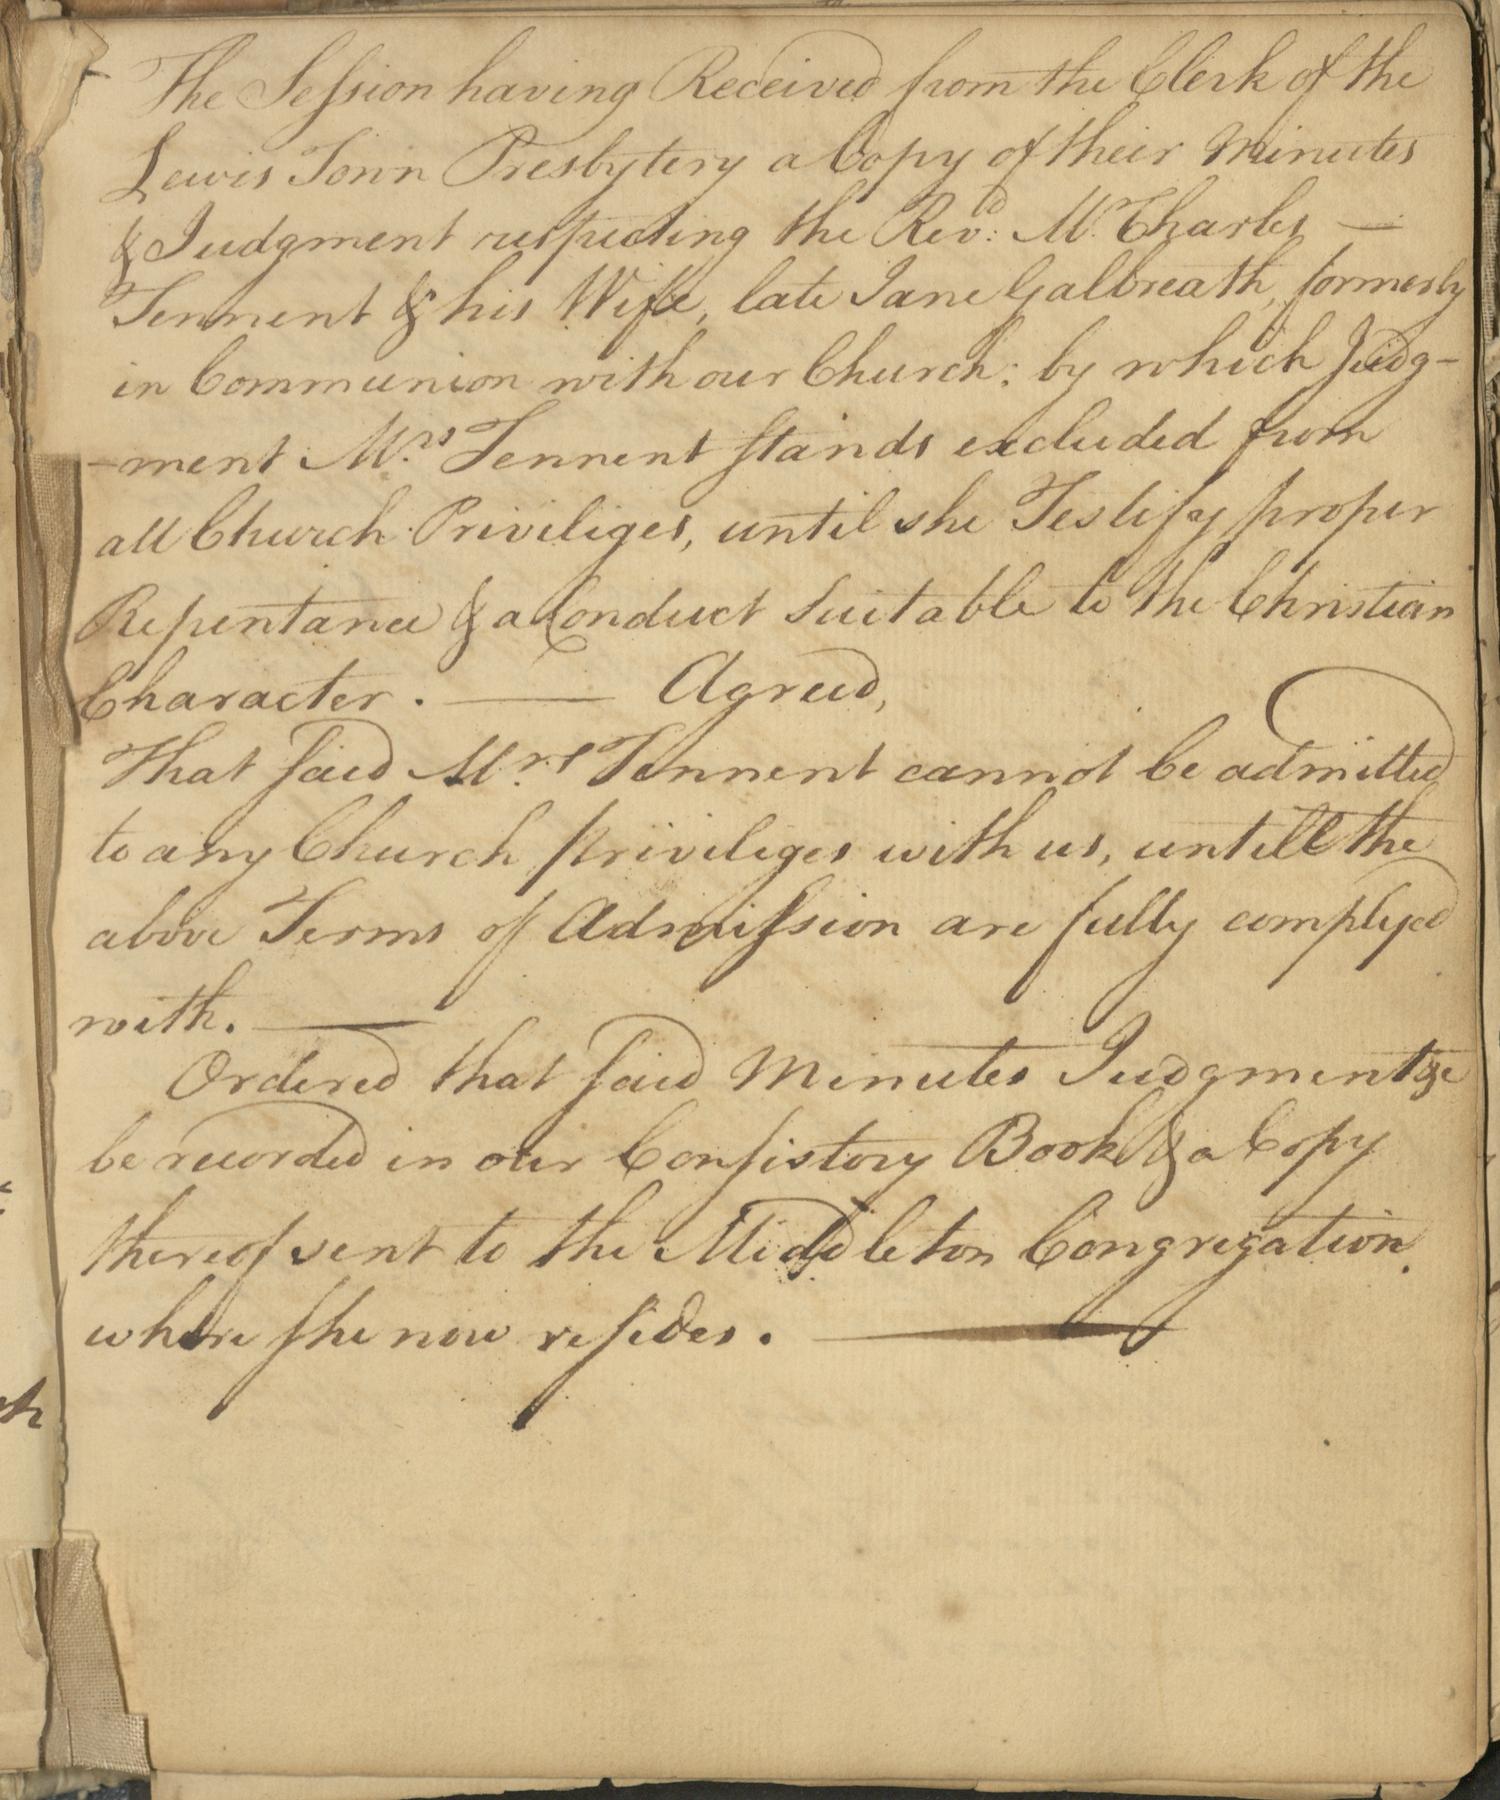 The Session having Received from the Clerk of the
Lewis Town Presbytery a Copy of their Minutes
& Judgment respecting the Revd: Mr. Charles —
Tennent & his Wife, late Jane Galbreath, formerly
in Communion with our Church; by which Judg-
-ment Mrs Tennent stands excluded from
all Church Priviliges, until she Testify proper
Repentance & a Conduct Suitable to the Christian
Character. — Agreed,
That said Mrs Tennent cannot be admitted
to any Church priviliges with us, untill the
above Terms of Admission are fully complyed
with. —
Ordered that said Minutes Judgment &c
be recorded in our Consistory Book & a Copy
thereof sent to the Middleton Congregation.
where she now resides. —